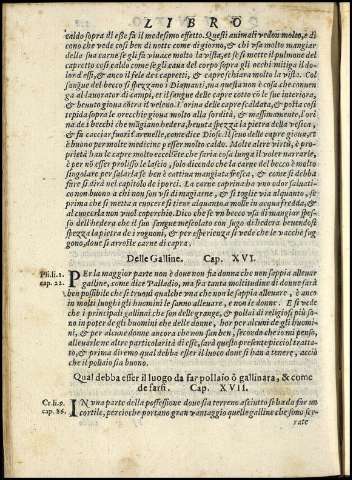 LIBRO
caldo sopra di esse fa il medesimo effetto. Questi animali vedon molto, e di
cono che vede così ben di notte come di giorno, & chi usa molto mangiar
della sua carne se gli fa vivace molto la vista, et se si mette il pulmone del
capretto così caldo come se gli cava del corpo sopra gli occhi mitiga il do-
lor d'essi, & anco il fele dei capretti, & capre schiara molto la vista. Col
sangue del becco si spezzano i Diamanti, ma questa non è cosa che conven
ga al lavorator di campi, et il sangue delle capre cotto có le sue interiora,
& bevuto giova cótra il veleno. L'orina delle capre scaldata, & posta così
tepida sopra le orecchie giova molto alla sordità, & massimamente, l'ori
na de i becchi che mágiano hedera, bevuta spezza la pietra della vesica,
& fa cacciar fuori l'arenelle, come dice Dios. Il seno delle capre giova, et
è buono per molte medicine per esser molto caldo. Molte altre virtù, & pro
prietà han le capre molto eccellenti che saria cosa lunga il voler narrarle,
però nó esser prolisso le lascio, solo dicendo che la carne del becco è molto
singolare per salarla se ben è cattiva mangiata fresca, & come si debba
fare si dirà nel capitolo de i porci. La carne caprina ha uno odor salvati-
co non buono a chi non son usi di magiarne, & si toglie via alquanto, se
prima che si metta a cuocere si tiene alquanto a molle in acqua fredda, &
al cuocerla non vuol coperchio. Dico che se un becco usa di mangiar spes-
so dell'hedera che il suo sangue mescolato con sugo di hedera bevendosi
spezza la pietra de i rognoni, & per esperienza si vede che le vacche fug
gono, dove si arrostie carne di capra.
Delle Galline. Cap. XVI.
Pli. li. 1.
cap. 22.
PEr la maggior parte non è dove non sia donna che non sappia allevar
galline, come dice Palladio, ma fra tanta moltitudine di donne sarà
ben possibile che si truovi qualche una che non le sappia allevare, & anco
in molti luoghi gli huomini le sanno allevare, e non le donne. E si vede
che i principali gallinai che son delle grange, & pollai di religiosi più so-
no in poter degli huomini che delle donne, hor per alcuni de gli huomi-
ni, & per alcune donne ancora che non san ben, secondo che mi penso,
allevarle ne altre particolarità di esse, sarà questo presente picciol tratta-
to, & prima diremo qual debba esser il luoco dove si han a tenere, acciò
che il pollaio sia buono.
Qual debba esser il luogo da far pollaio ò gallinara, & come
de farsi. Cap. XVII.
Cr. li. 9.
cap. 86.
IN una parte della possessione dove sia terreno asciutto si ha da far un
cortile, percioche portano gran vantaggio quelle galline che sono ser-
rate